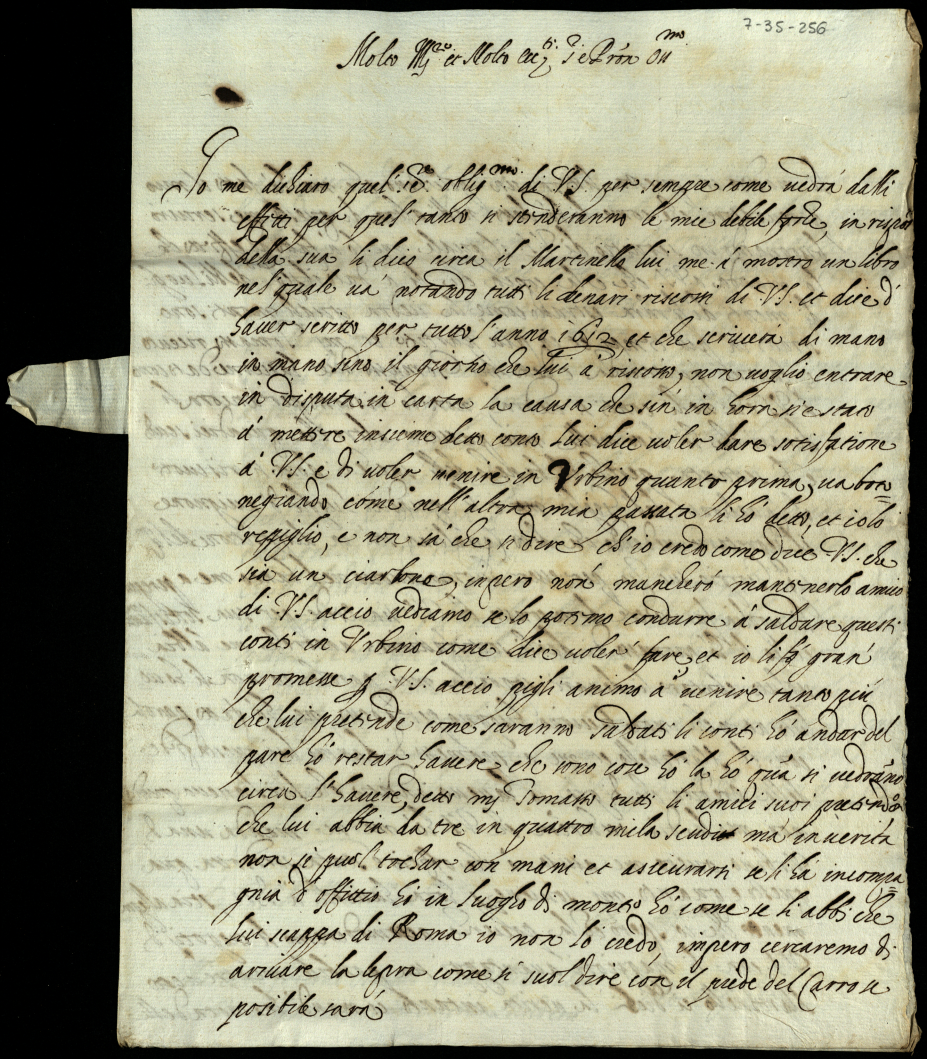 7-35-256
Molto Mg.co et Molto Ecc.te S.r e Prōn Oss.mo
Io me dichiaro quel ser.re oblig.mo di V.S. per sempre come vedrà dalli
effetti per quel tanto si stenderanno le mie debile forze, in rispos
della sua li dico circa il Martinello lui me à mostro un libro
nel quale va notando tutti li denari riscotti di V.S. et dice d'
haver scritto per tutto l'anno 1612, et che scriverà di mano
in mano sino il giorno che lui à riscotto, non voglio entrare
in disputa in carta la causa che sin' in hora si è stato
à mettere insieme detto conto lui dice voler dare sotisfatione
à V.S. e di voler venire in Urbino quanto prima, va bor=
negiando come nell'altra mia passata li hò detto, et io lo
repiglio, e non sà che si dire ch'io credo come dice V.S. che
sia un ciarlone, inpero non mancherò mantinerlo amico
di V.S. accio vediamo se lo potemo condurre à saldare questi
conti in Urbino come dice voler fare, et io li fo gran
promesse p V.S. accio pigli animo à venire tanto più
che lui pretende come saranno saldati li conti hò andar del
pare hò restar havere che sono cose hò la hò quà si vedranno
circa l'havere, detto m Tomasso tutti li amici suoi pretendo
che lui abbia da tre in quattro mila scudi ma in verità
non si puol tochar con mani et assicurarsi se li ha in compa=
gnia d'offitio hò in luogho di monte hò come se li abbi che
lui scappa di Roma io non lo credo, impero cercaremo di
arivare la lepra come si suol dire con il piede del Carro se
posibile sarà